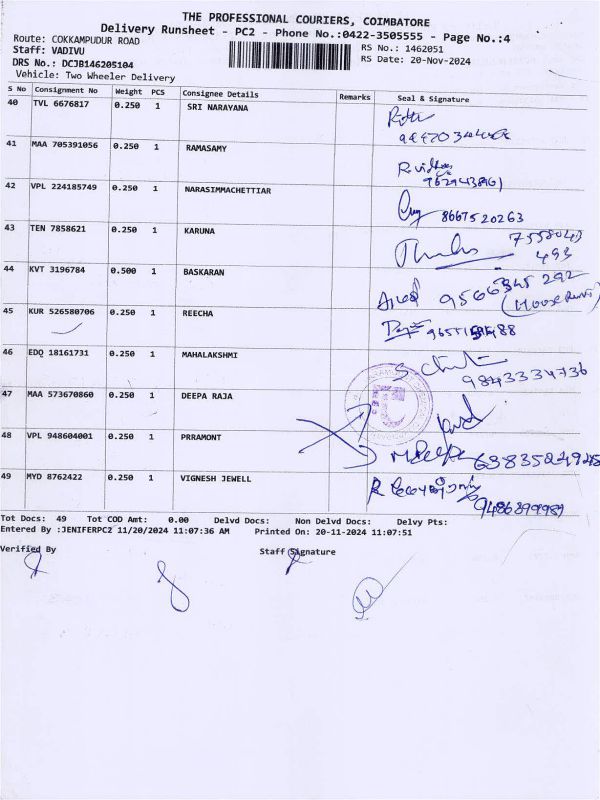 THE PROFESSIONAL COURIERS, COIMBATORE
Delivery Runsheet - PC2 - Phone No.:0422-3505555 - Page No.:4
Route: COKKAMPUDUR ROAD RS No.: 1462051
Staff: VADIVU RS Date: 20-Nov-2024
DRS No.: DCJB146205104
Vehicle: Two Wheeler Delivery
S No Consignment No Weight PCS Consignee Details Remarks Seal & Signature
40 TVL 6676817 0.250 1 SRI NARAYANA
41 MAA 705391056 0.250 1 RAMASAMY
42 VPL 224185749 0.250 1 NARASIMMACHETTIAR
8667520263
43 TEN 7858621 0.250 1 KARUNA
7558043
493
44 KVT 3196784 0.500 1 BASKARAN
9566345 292
45 KUR 526580706 0.250 1 REECHA
46 EDQ 18161731 0.250 1 MAHALAKSHMI
9843334736
47 MAA 573670860 0.250 1 DEEPA RAJA
48 VPL 948604001 0.250 1 PRRAMONT
49 MYD 8762422 0.250 1 VIGNESH JEWELL
Tot Docs: 49 Tot COD Amt: 0.00 Delvd Docs: Non Delvd Docs: Delvy Pts:
Entered By :JENIFERPC2 11/20/2024 11:07:36 AM Printed On: 20-11-2024 11:07:51
Verified By Staff Signature